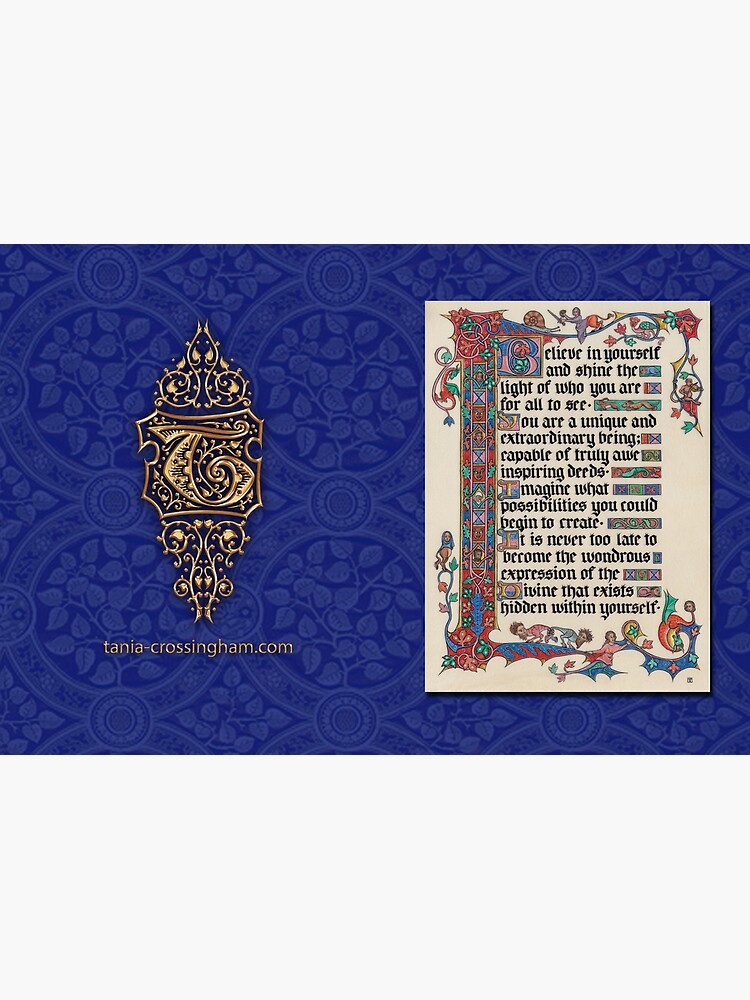 T
tania-crossingham.com
Believe in yourself
and shine the
light of who you are
for all to see.
You are a unique and
extraordinary being;
capable of truly awe
inspiring deeds.
Imagine what
possibilities you could
begin to create.
It is never too late to
become the wondrous
expression of the
Divine that exists
hidden within yourself.